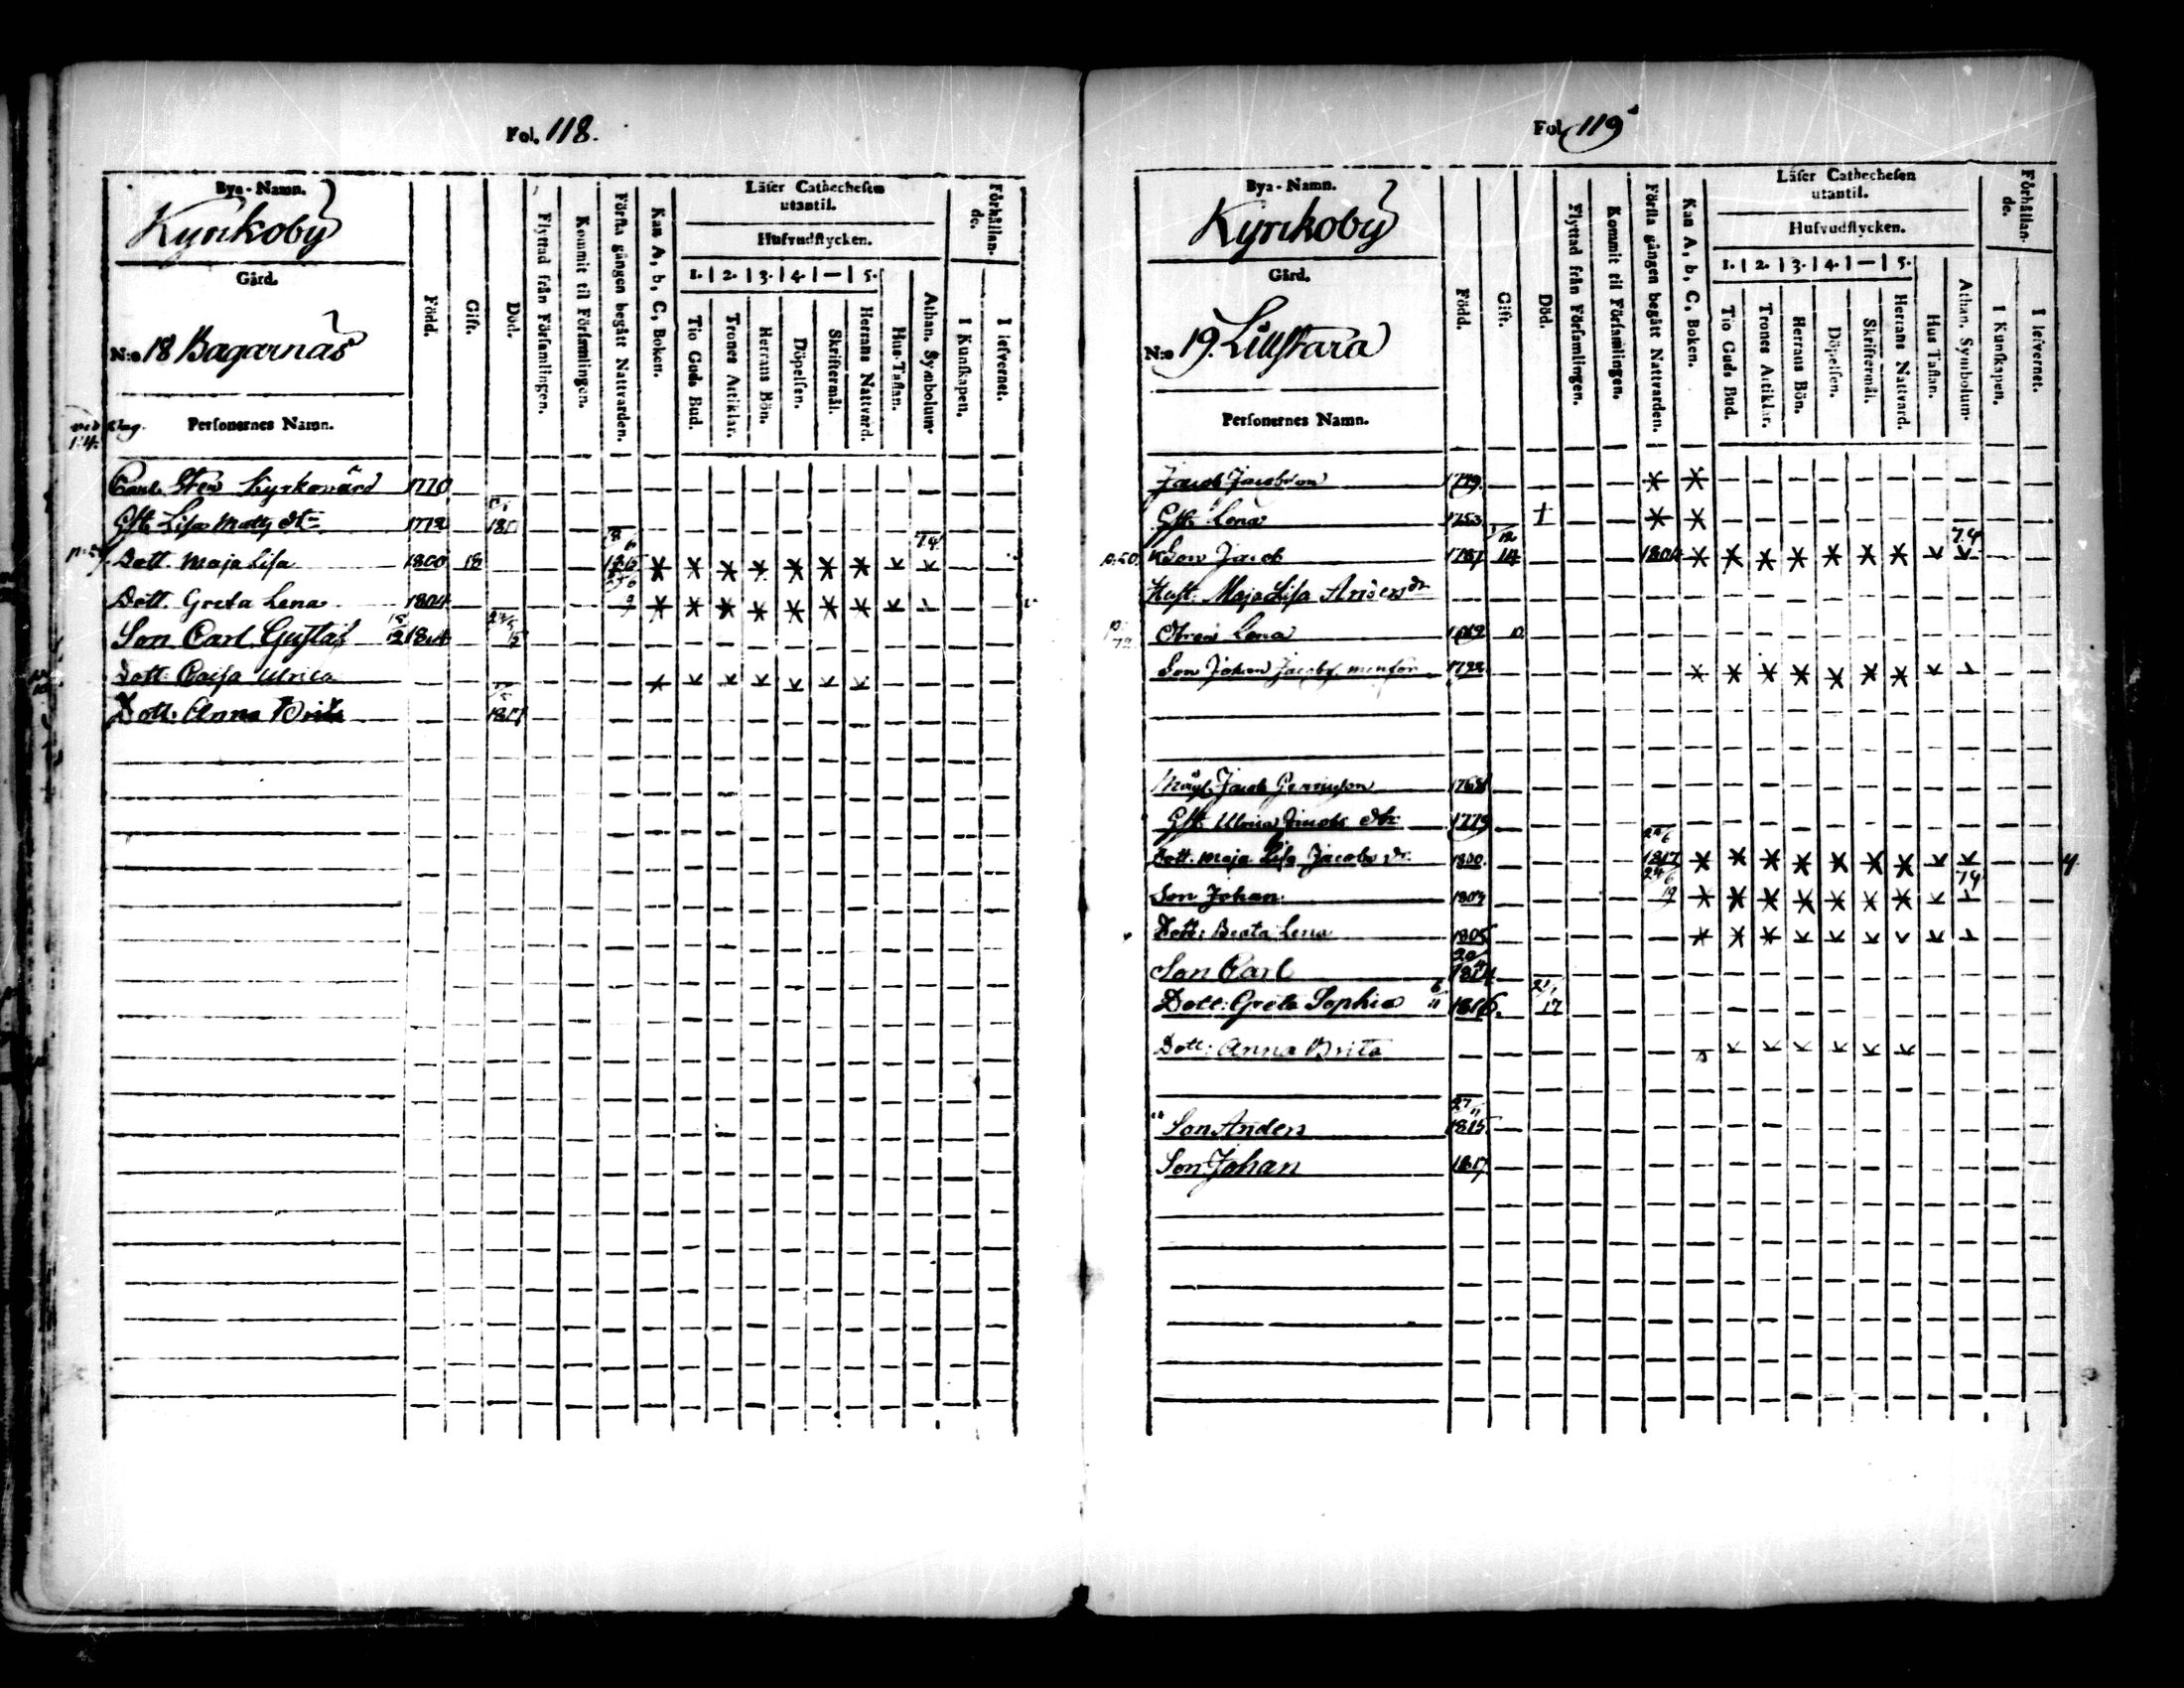 Fol. 118.
Bya-Namn.
Kyrikoby
Gård.
N:o 18 Bagarnäs
Personernes Namn.
Född.
Gift.
Död.
Flyttad från Församlingen.
Kommit til Församlingen.
Första gången begått Nattvarden.
Kan A, b, C, Boken.
Läser Cathechesen
utantil.
Hufvudstycken.
1. 2. 3. 4. — 5.
Tio Guds Bud.
Trones Artiklar.
Herrans Bön.
Döpelsen.
Skriftermål.
Herrans Nattvard.
Hus-Taflan.
Athan. Symbolum.
Förhållan-
de.
I Kunskapen.
I lefvernet.
Carl Sten Kyrkovärd 1770
Gft. Lisa Matts dt 1772
Dott. Maja Lisa 1800 18
Dott. Greta Lena 1804
Son Carl Gustaf 1814 15
Dott: Caisa Ulrica
Dott: Anna Brita
Fol. 119
Bya-Namn.
Kyrikoby
Gård.
N:o 19. Lillstara
Personernes Namn.
Född.
Gift.
Död.
Flyttad från Församlingen.
Kommit til Församlingen.
Första gången begått Nattvarden.
Kan A, b, C, Boken.
Läser Cathechesen
utantil.
Hufvudstycken.
1. 2. 3. 4. — 5.
Tio Guds Bud.
Trones Artiklar.
Herrans Bön.
Döpelsen.
Skriftermål.
Herrans Nattvard.
Hus Taflan.
Athan. Symbolum.
Förhållan-
de.
I Kunskapen.
I lefvernet.
Jacob Jacobson
Gft. Lena 1753
Son Jacob 1787 14 1804
Hust. Maja Lisa Anders dr
Lena
Son Johan Jacobs.
Jacob
Gft. Ulrica Jacobs dtr 1779
Dott. Maja Lisa Jacobs dr. 1800. 1817
Son Johan 19
Dott: Beata Lena 1805
Son Carl 1814
Dott: Greta Sophia 1816. 17
Dott: Anna Brita
Son Anders 1815.
Son Johan 1817